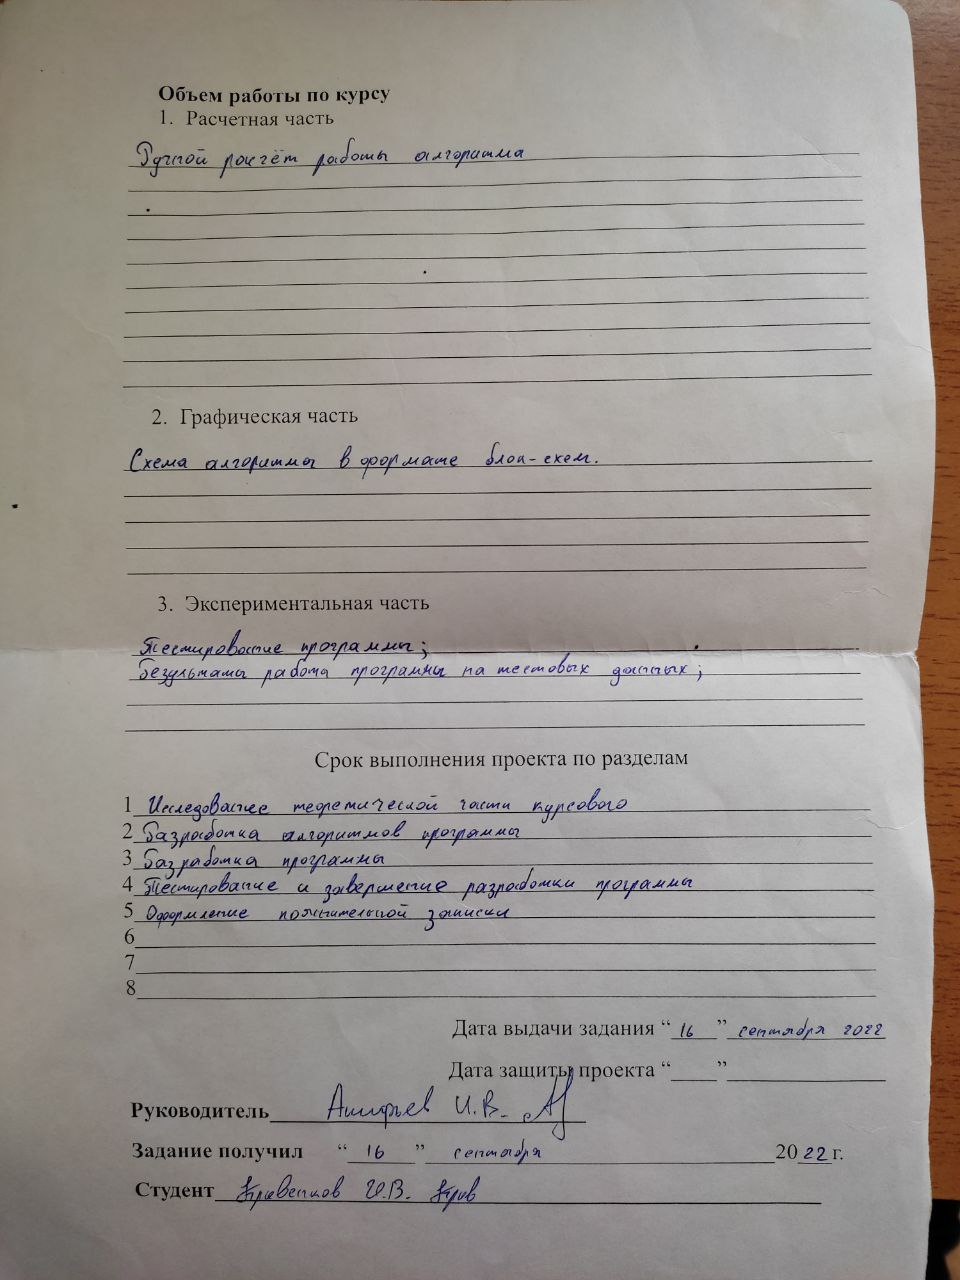 Объем работы по курсу
1. Расчетная часть
Ручной расчёт работы алгоритма
2. Графическая часть
Схема алгоритма в формате блок-схем.
3. Экспериментальная часть
Тестирование программы;
Результаты работа программы на тестовых данных;
Срок выполнения проекта по разделам
1 Исследование теоретической части курсового
2 Разработка алгоритмов программы
3 Разработка программы
4 Тестирование и завершение разработки программы
5 Оформление пояснительной записки
6
7
8
Дата выдачи задания “16” сентября 2022
Дата защиты проекта “ ”
Руководитель И.В.
Задание получил “16” сентября 2022 г.
Студент И.В.